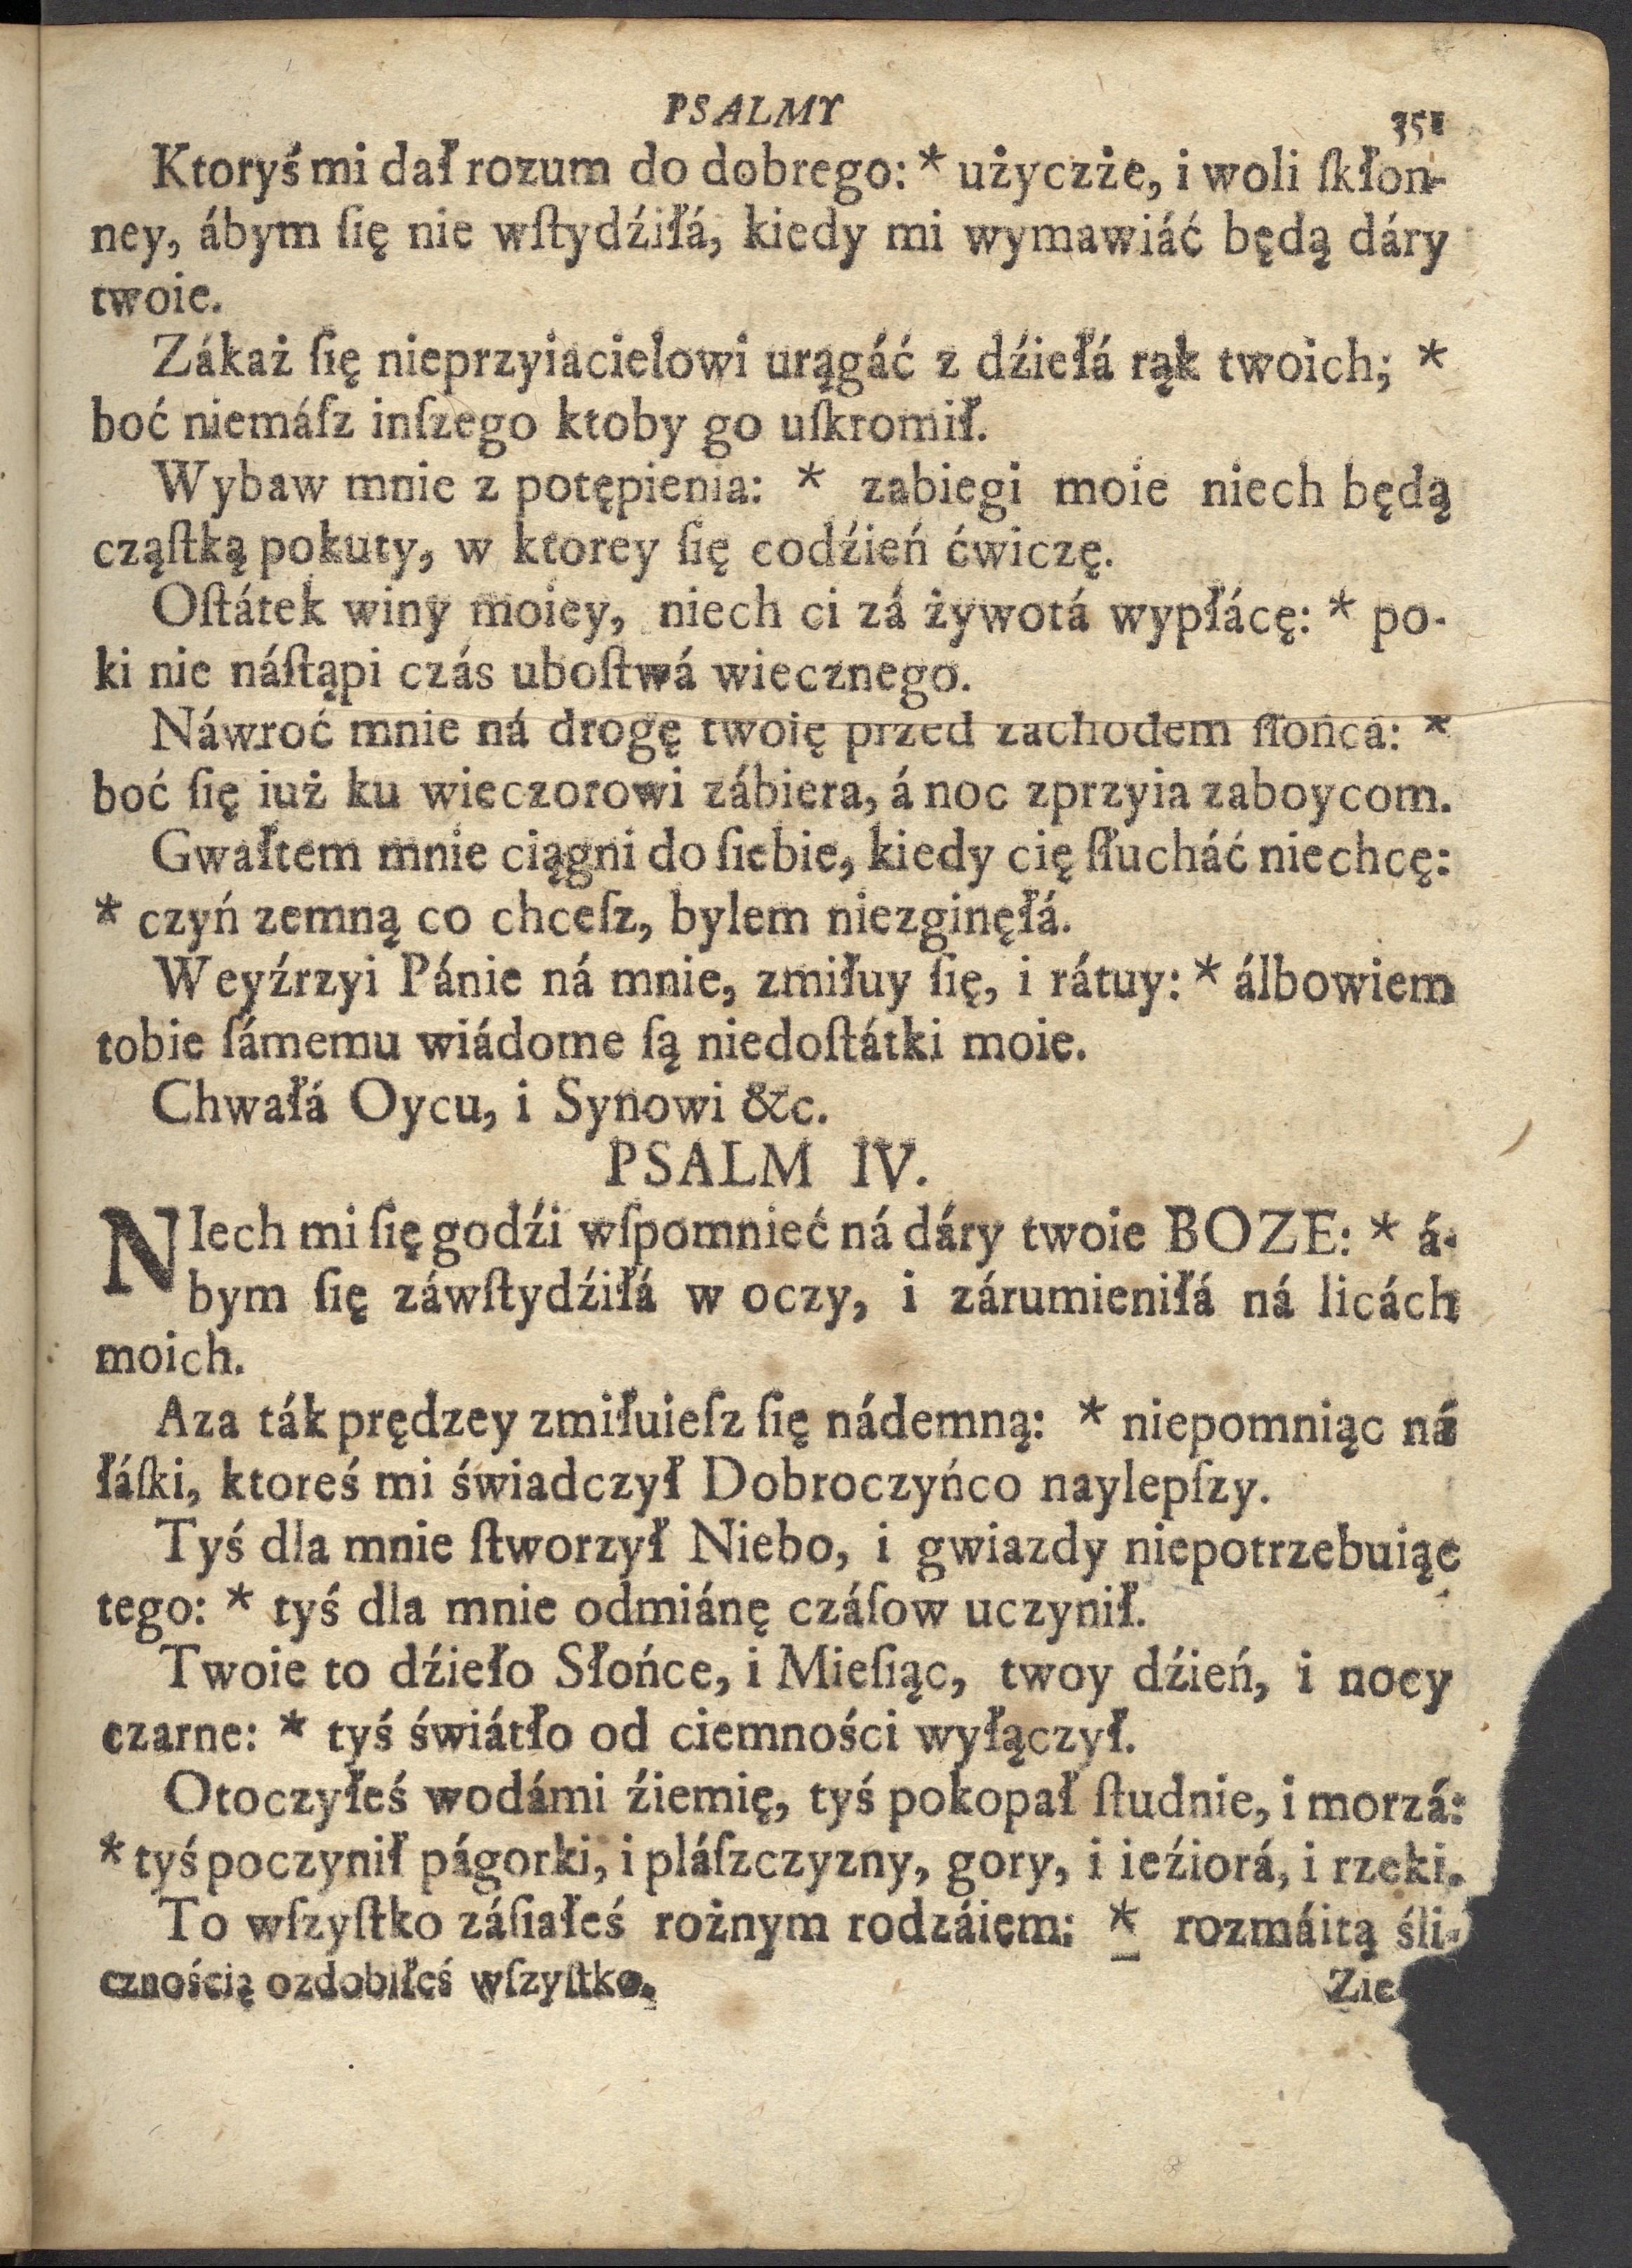 PSALMY 351
Ktoryś mi dał rozum do dobrego: * użyczże, i woli ſkłon-
ney, ábym ſię nie wſtydźiłá, kiedy mi wymawiáć będą dáry
twoie.
Zákaż ſię nieprzyiacielowi urągáć z dźiełá rąk twoich; *
boć niemáſz inſzego ktoby go uſkromił.
Wybaw mnie z potępienia: * zabiegi moie niech będą
cząſtką pokuty, w ktorey ſię codźień ćwiczę.
Oſtátek winy moiey, niech ci zá żywotá wypłácę: * po-
ki nie náſtąpi czás uboſtwá wiecznego.
Náwroć mnie ná drogę twoię przed zachodem ſłońca: *
boć ſię iuż ku wieczorowi zábiera, á noc zprzyia zaboycom.
Gwałtem mnie ciągni do ſiebie, kiedy cię ſłucháć niechcę:
* czyń zemną co chceſz, bylem niezginęłá.
Weyźrzyi Pánie ná mnie, zmiłuy ſię, i rátuy: * álbowiem
tobie ſámemu wiádome ſą niedoſtátki moie.
Chwałá Oycu, i Synowi &c.
PSALM IV.
NIech mi ſię godźi wſpomnieć ná dáry twoie BOZE: * á-
bym ſię záwſtydźiłá w oczy, i zárumieniłá ná licách
moich.
Aza ták prędzey zmiłuieſz ſię nádemną: * niepomniąc ná
łáſki, ktoreś mi świadczył Dobroczyńco naylepſzy.
Tyś dla mnie ſtworzył Niebo, i gwiazdy niepotrzebuiąc
tego: * tyś dla mnie odmiánę czáſow uczynił.
Twoie to dźieło Słońce, i Mieſiąc, twoy dźień, i nocy
czarne: * tyś świátło od ciemności wyłączył.
Otoczyłeś wodámi źiemię, tyś pokopał ſtudnie, i morzá:
* tyś poczynił págorki, i pláſzczyzny, gory, i ieźiorá, i rzeki.
To wſzyſtko záſiałeś rożnym rodzáiem: * rozmáitą śli-
cznością ozdobiłeś wſzyſtko.
Zie